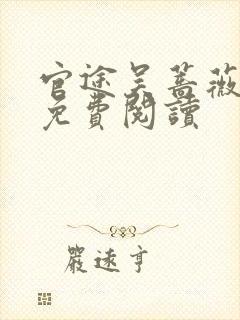 官途吴蔷薇
免費閱讀
嚴速亨